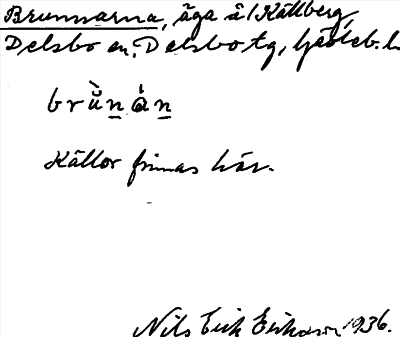 Brunnarna, äga å/Källberg,
Delsbo sn, Delsbo tg, Häs
brùnán
Källor finnas här.
Nils Erik Erikson 1936.